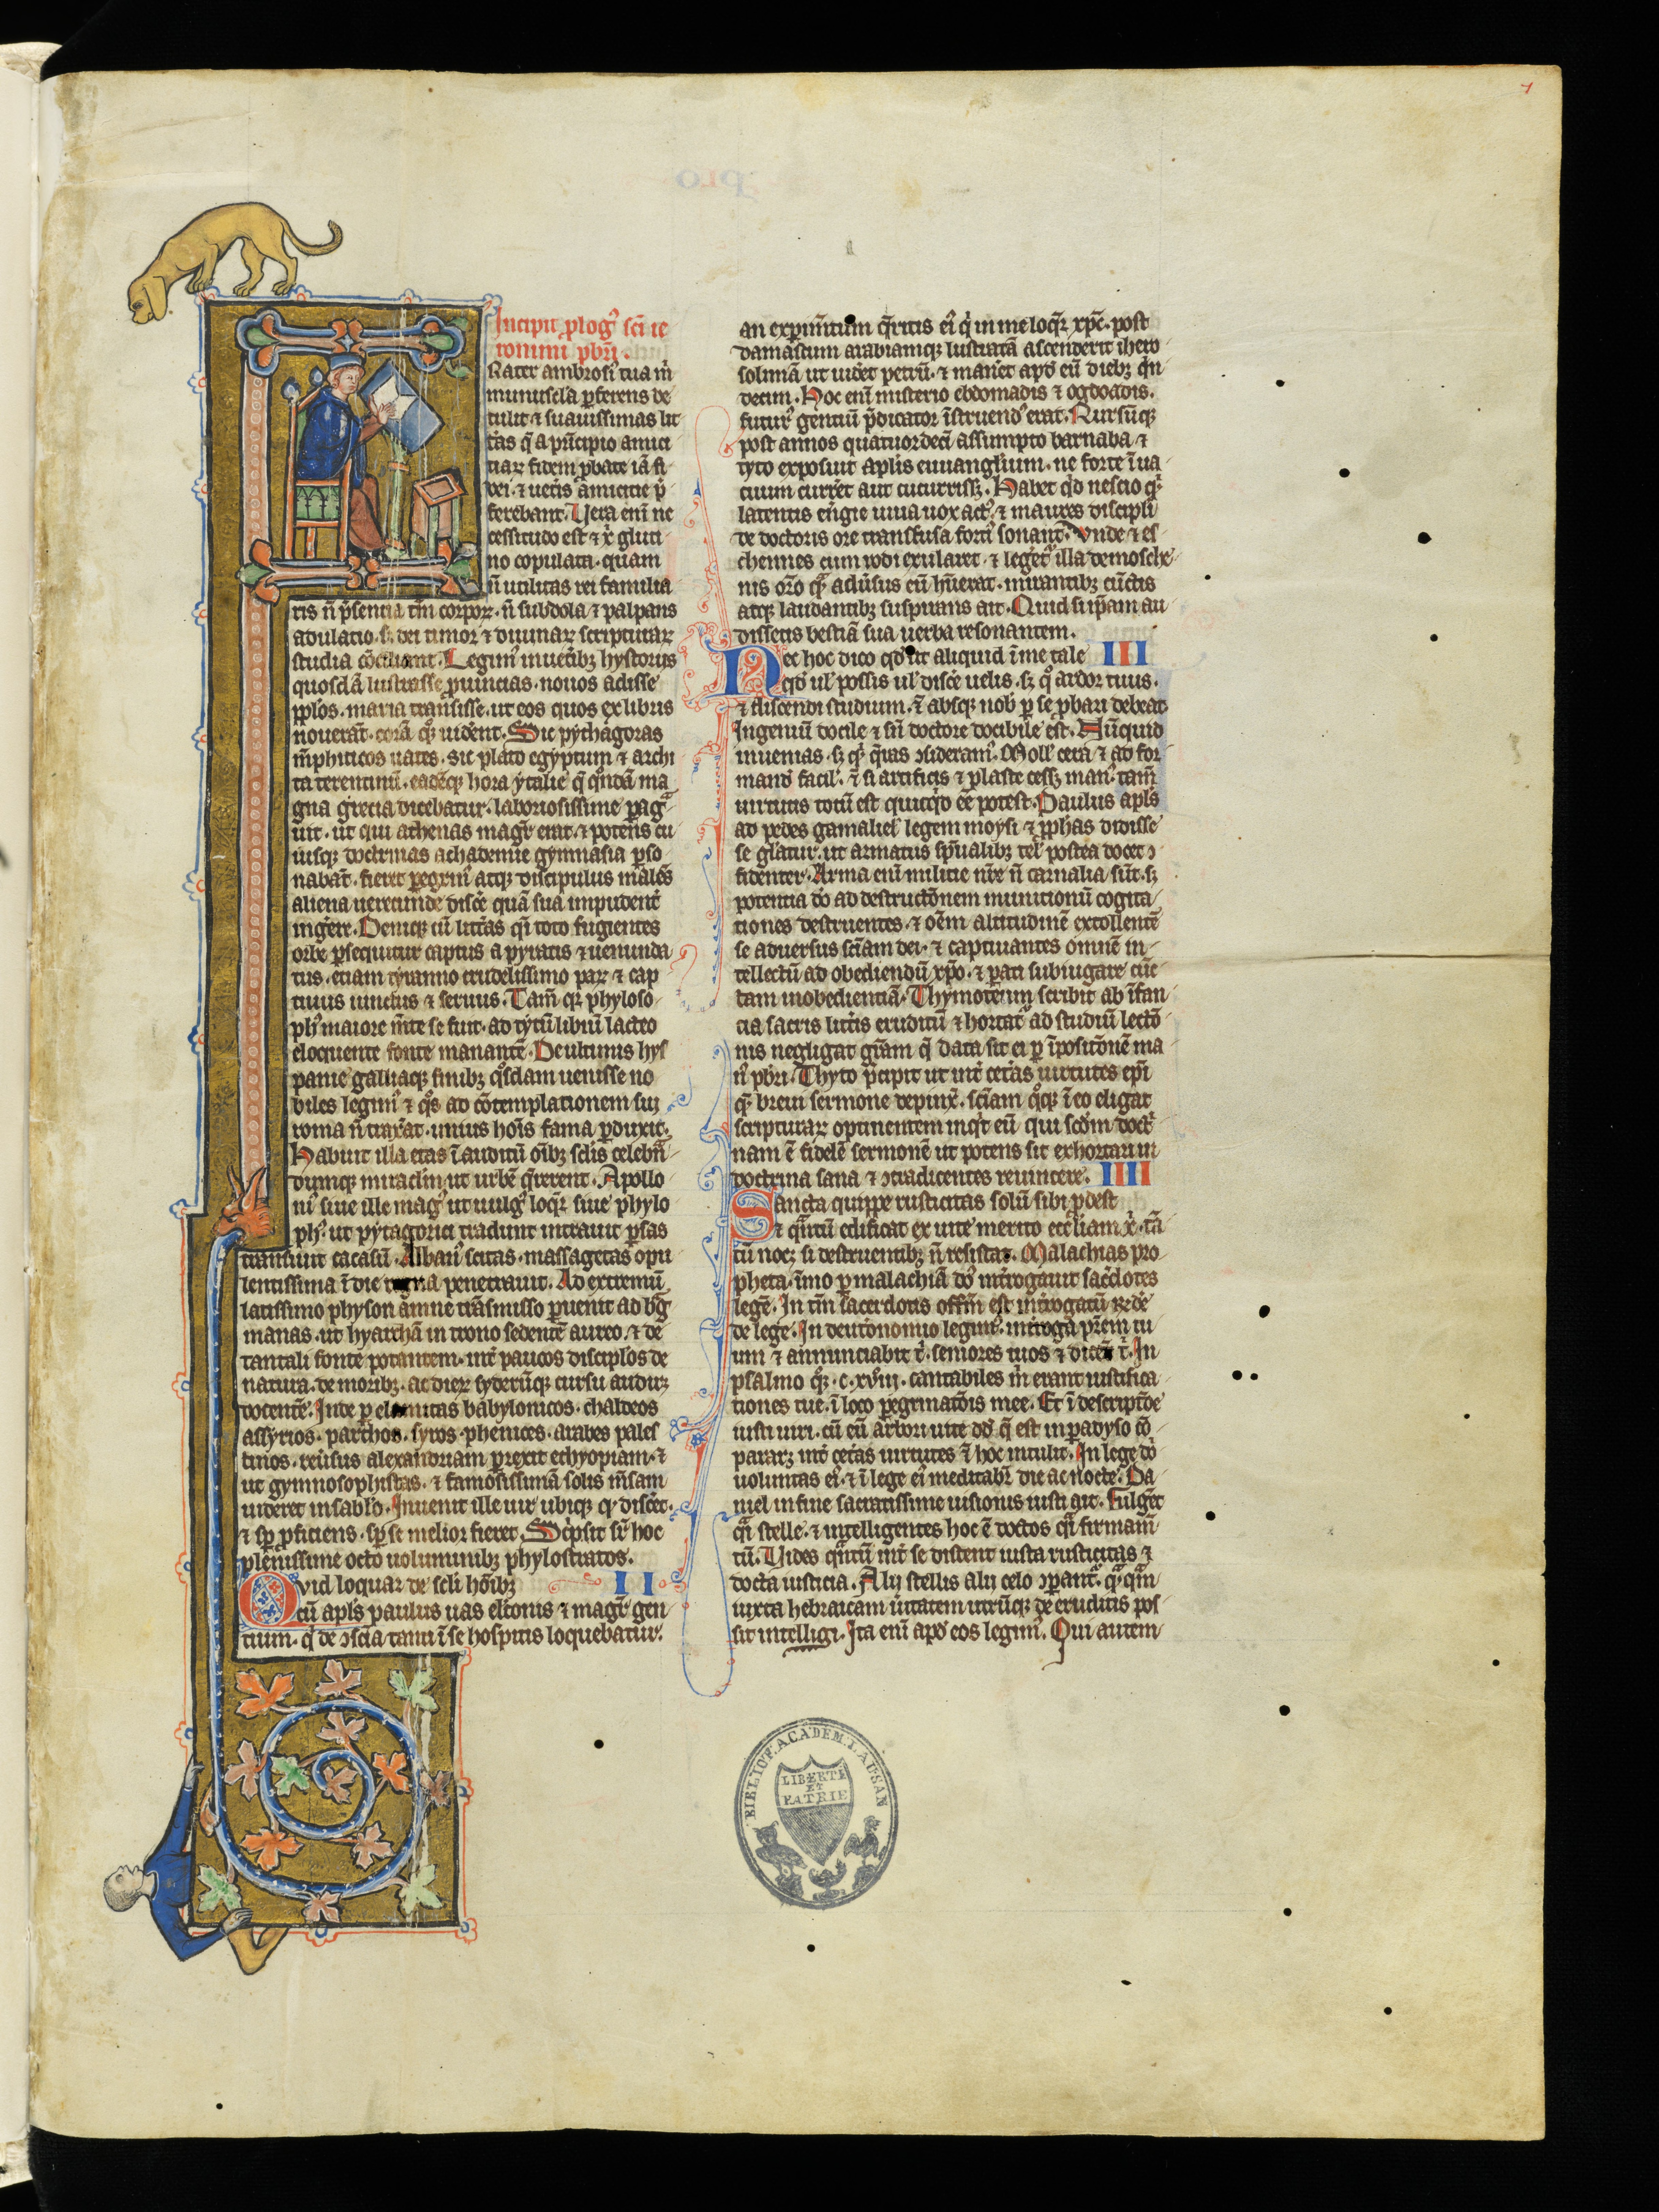 Incipit ꝓlog᷒ sc̄i ie
ronimi p̄bri.
Rater ambrosi᷒ tua m̄
munuscl̄a ꝑferens de
tulit ⁊ suauissimas litt
t̄as q̄ a p̄ncipio amici
tiaꝝ fidem ꝓbate iā fi
dei. ⁊ uet̄is amicicie p̄
ferebant. Vera eni᷒ ne
cessitudo est ⁊ xp̄i gluti
no copulata. quam
n̄ utilitas rei familia
ris n̄ p̄sencia tm̄ corpoꝝ. n̄ subdola ⁊ palpans
adulatio. sꝫ dei timor ⁊ diuinaꝝ scripturaꝝ
studia cōciliant. Legim᷒ in uet̄ibꝫ hystoriis
quosdā lustrasse ꝓuincias. nouos adisse
pp̄los. maria transisse. ut eos quos ex libris
nouerāt. corā qꝫ uidēnt. Sic pythagoras
m̄phiticos uates. sic plato egyptum ⁊ archi
ta terentinū. eadēqꝫ hora ytalie q̄ qͦndā ma
gna grecia dicebatur. laboriosissime ꝑagͣ
uit. ut qui athenas magr̄ erat. ⁊ potens cu
iusqꝫ doctrinas achademie gymnasia ꝑso
nabāt. fieret ꝑegrin᷒ atqꝫ discipulus mal̄es
aliena uerecunde disce᷒ quā sua impudent̄
inge᷒re. Deniqꝫ cū litt̄as qi᷒ toto fugientes
orbe ꝑsequitur captus a pyratis ⁊ uenunda
tus. etiam tyranno crudelissimo paꝝ ⁊ cap
tiuus uinctus ⁊ seruus. Tam̄ qꝛ phyloso
ph᷒ maiore m̄te se fuit. ad tytū libiū lacteo
eloquente fonte manantē. De ultimis hys
panie galliaqꝫ finibꝫ qͦsdam uenisse no
biles legim᷒ ⁊ qͦs ad cōtemplationem sui
roma n̄ traxāt. unius hoi᷒s fama ꝑduxit.
Habuit illa etas ī auditū oi᷒bꝫ sclīs celebrā
dumqꝫ miraclīm ut urbē q̄rerent. Apollo
ni᷒ siue ille mag᷒ ut uulg᷒ loqͬ siue phylo
ph᷒ ut pytagorici tradunt intrauit ꝑsas
transiuit cacasū. Alban᷒ scitas. massagetas opu
lentissima īdie regna penetrauit. Ad extremū
latissimo physon amne trāsmisso ꝑuenit ad bg̃
manas. ut hyarchā in trono sedentē aureo. ⁊ de
tantali fonte potantem. int᷒ paucos disciplōs de
natura. de moribꝫ. ac dieꝝ syderūqꝫ cursu audiꝫ
docentē. Inde ꝑ elamitas babylonicos. chaldeos
assyrios. parthos. syros. phenices. arabes pales
tinos. reu᷒sus alexandriam ꝑrexit ethyopiam. ⁊
ut gymnosophistas. ⁊ famosissimā solis m̄sam
uideret in sablo᷒. Inuenit ille uir ubiqꝫ qͦ disce᷒t.
⁊ sꝑ ꝓficiens. sꝑ se melior fieret. Sc̄psit sr̄ hoc
plenissime octo uoluminibꝫ phylostratos.
Qvid loquar de scl̄i ho᷒ibꝫ II
cū apl̄s paulus uas elc̄onis ⁊ magr̄ gen
tium. qͥ de ↄscīa tanti ī se hospitis loquebatur.
an experimtūm q̄ritis ei᷒ qͥ in me loqͬ xp̄c. post
damascum arabiamqꝫ lustratā ascenderit ihero
solimā ut uidēt petrū. ⁊ manēt apd᷒ eū diebꝫ qͥn
decim. Hoc eni᷒ misterio ebdomadis ⁊ ogdoadis.
futur᷒ gentiū p̄dicator īstruend᷒ erat. Rursūqꝫ
post annos quatuordeci᷒ assumpto barnaba ⁊
tyto exposuit apl̄is euuangl̄ium. ne forte ī ua
cuum curret aut cucurrissꝫ. Habet qd᷒ nescio qͥ
latentis en᷒gie uiua uox act᷒. ⁊ in aures discipli
de doctoris ore transfusa forti᷒ sonant. Vnde ⁊ es
chennes cum rodi exularet. ⁊ legēt᷒ illa demosthe
nis orō qͣ adu᷒sus eū hūerat. mirantibꝫ cūctis
atqꝫ laudantibꝫ suspirans ait. Quid si ip̄am au
dissetis bestiā sua uerba resonantem.
Nec hoc dico qd᷒ sit aliquid ī me tale III
qd᷒ ul᷒ possis ul᷒ disce᷒ uelis. sꝫ qͦ ardor tuus.
⁊ discendi studium. ⁊ absqꝫ nob̄ ꝑ se ꝓbari debeat
Ingeniū docile ⁊ sn̄ doctore docibile est. Nūquid
inuenias. sꝫ qͥ q̄ras ↄsideram᷒. Moll᷒ cera ⁊ ad for
mand᷒ facil᷒. ⁊ si artificis ⁊ plaste cessꝫ man᷒. tam̄
uirtutis totū est quicqͥd ēe potest. Paulus apl̄s
ad pedes gamaliel᷒ legem moysi ⁊ ꝓphas didisse
se gl̄atur. ut armatus sp̄ualibꝫ tel᷒ postea docet ↄ
fidenter. Arma eni᷒ milicie nr̄e n̄ carnalia sūt. sꝫ
potentia do᷒ ad destructōnem munitionū cogita
tiones destruentes. ⁊ oēm altitudinē extollentē
se aduersus scīam dei. ⁊ captiuantes omnē in
tellectū ad obediendū xp̄o. ⁊ parati subiugare cūc
tam inobedientiā. Thymoteum scribit ab īfan
cia sacris litt̄is eruditū ⁊ hortat᷒ ad studiū lectō
nis negligat gr̄am q̄ data sit ei ꝑ īpositōnē ma
n᷒ p̄bri. Thyto p̄cipit ut int᷒ cet᷒as uirtutes ep̄i
qͣ breui sermone depinx᷒. scīam qͦqꝫ ī eo eligat
scripturaꝝ optinentem inqͥt eū qui scd᷒m doctͥ
nam ē fidelē sermonē ut potens sit exhortari in
doctrina sana ⁊ ↄtradicentes reuincere. IIII
Sancta quippe rusticitas solū sibi ꝓdest
⁊ qͣntū edificat ex uite merito eccl̄iam xp̄i. tā
tū nocꝫ si destruentibꝫ n̄ resistat. Malachias pro
pheta. īmo ꝑ malachiā do᷒ int̄rogauit sac᷒dotes
legē. In tm̄ sacerdotis offm̄ est int̄rogatū rn̄de᷒
de lege. In deutōnomio legim᷒. int̄roga pr̄em tu
um ⁊ annunciabit t᷒. seniores tuos ⁊ dicent t᷒. In
psalmo qͦꝫ .c.xviii. cantabiles m᷒ erant iustifica
tiones tue. ī loco ꝑegrinatōis mee. Et ī descriptōe
iusti uiri. cū eū arbori uite dd᷒ q̄ est in ꝑadyso cō
pararꝫ int᷒ cet᷒as uirtutes ⁊ hoc intulit. In lege do᷒
uoluntas ei᷒. ⁊ ī lege ei᷒ meditabr̄ die ac nocte. Da
niel in fine sacratissime uisionis iusti ait. fulge᷒t
qͣi stelle. ⁊ intelligentes hoc ē doctos qͣi firmam̄
tū. Vides qͣntū int᷒ se distent iusta rusticitas ⁊
docta iusticia. Alii stellis alii celo ↄparant᷒. qͣqͣm
iuxta hebraicam u᷒itatem utrūqꝫ de eruditis pos
sit intelligi. Ita eni᷒ apd᷒ eos legim᷒. Qui autem
BIBLIOT. ACADEM. LAUSAN
LIBERTÉ
ET
PATRIE